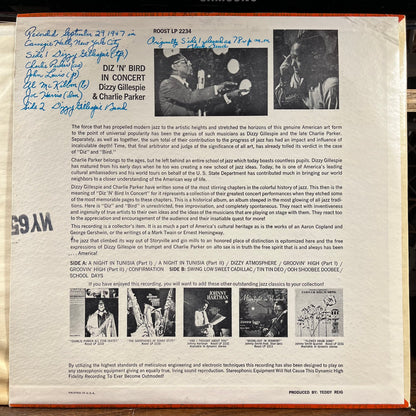 Recorded September 29, 1947 in
Carnegie Hall, New York City
Side 1 Dizzy Gillespie (tp)
Charlie Parker (as)
John Lewis (p)
Al McKibbon (b)
Joe Harris (dm)
Side 2 Dizzy Gillespie Band
ROOST LP 2234
Originally Side 1 issued as 78rpm on
Black Deuce
DIZ 'N' BIRD
IN CONCERT
Dizzy Gillespie
& Charlie Parker
The force that has propelled modern jazz to the artistic heights and stretched the horizons of this genuine American art form
to the point of universal popularity has been the genius of such musicians as Dizzy Gillespie and the late Charlie Parker.
Separately, as well as together, the sum total of their contribution to the progress of jazz has had an impact and influence of
incalculable depth! Time, that final arbitrator and judge of the significance of all art, has already tolled its verdict in the case
of "Diz" and "Bird."
Charlie Parker belongs to the ages, but he left behind an entire school of jazz which today boasts countless pupils. Dizzy Gillespie
has matured from his early days when he too was creating a new school of jazz ideas. Today, he is one of America's leading
cultural ambassadors and his world tours on behalf of the U. S. State Department has contributed much in bringing our world
neighbors to a closer understanding of the American way of life.
Dizzy Gillespie and Charlie Parker have written some of the most stirring chapters in the colorful history of jazz. This then is the
meaning of "Diz 'N' Bird In Concert" for it represents a collection of their greatest concert performances when they etched some
of the most memorable pages to these chapters. This is a historical album, an album steeped in the most glowing of all jazz tradi-
tions. Here is "Diz" and "Bird" in unrestricted, free improvisation, and completely spontaneous. They react with inventiveness
and ingenuity of true artists to their own ideas and the ideas of the musicians that are playing on stage with them. They react too
to the appreciation and encouragement of the audience and their insatiable quest for more!
This recording is a collector's item. It is as much a part of America's cultural heritage as is the works of an Aaron Copland and
George Gershwin, or the writings of a Mark Twain or Ernest Hemingway.
The jazz that climbed its way out of Storyville and gin mills to an honored place of distinction is epitomized here and the free
expressions of Dizzy Gillespie on trumpet and Charlie Parker on alto sax is in truth the free spirit that is and always has been
. . . America!
SIDE A: A NIGHT IN TUNISIA (Part I) / A NIGHT IN TUNISIA (Part II) / DIZZY ATMOSPHERE / GROOVIN' HIGH (Part I) /
GROOVIN' HIGH (Part II) / CONFIRMATION SIDE B: SWING LOW SWEET CADILLAC / TIN TIN DEO / OOH SHOOBEE DOOBEE /
SCHOOL DAYS
WY65
If you have enjoyed this recording, you will want to add these other outstanding jazz classics to your collection!
JOHNNY
HARTMAN
By utilizing the highest standards of meticulous engineering and electronic techniques this recording has also been designed to play on
any stereophonic equipment giving an equally true, living sound reproduction. Stereophonic Equipment Will Not Cause This High
Fidelity Recording To Ever Become Outmoded!
PRINTED IN U.S.A.
PRODUCED BY: TEDDY REIG